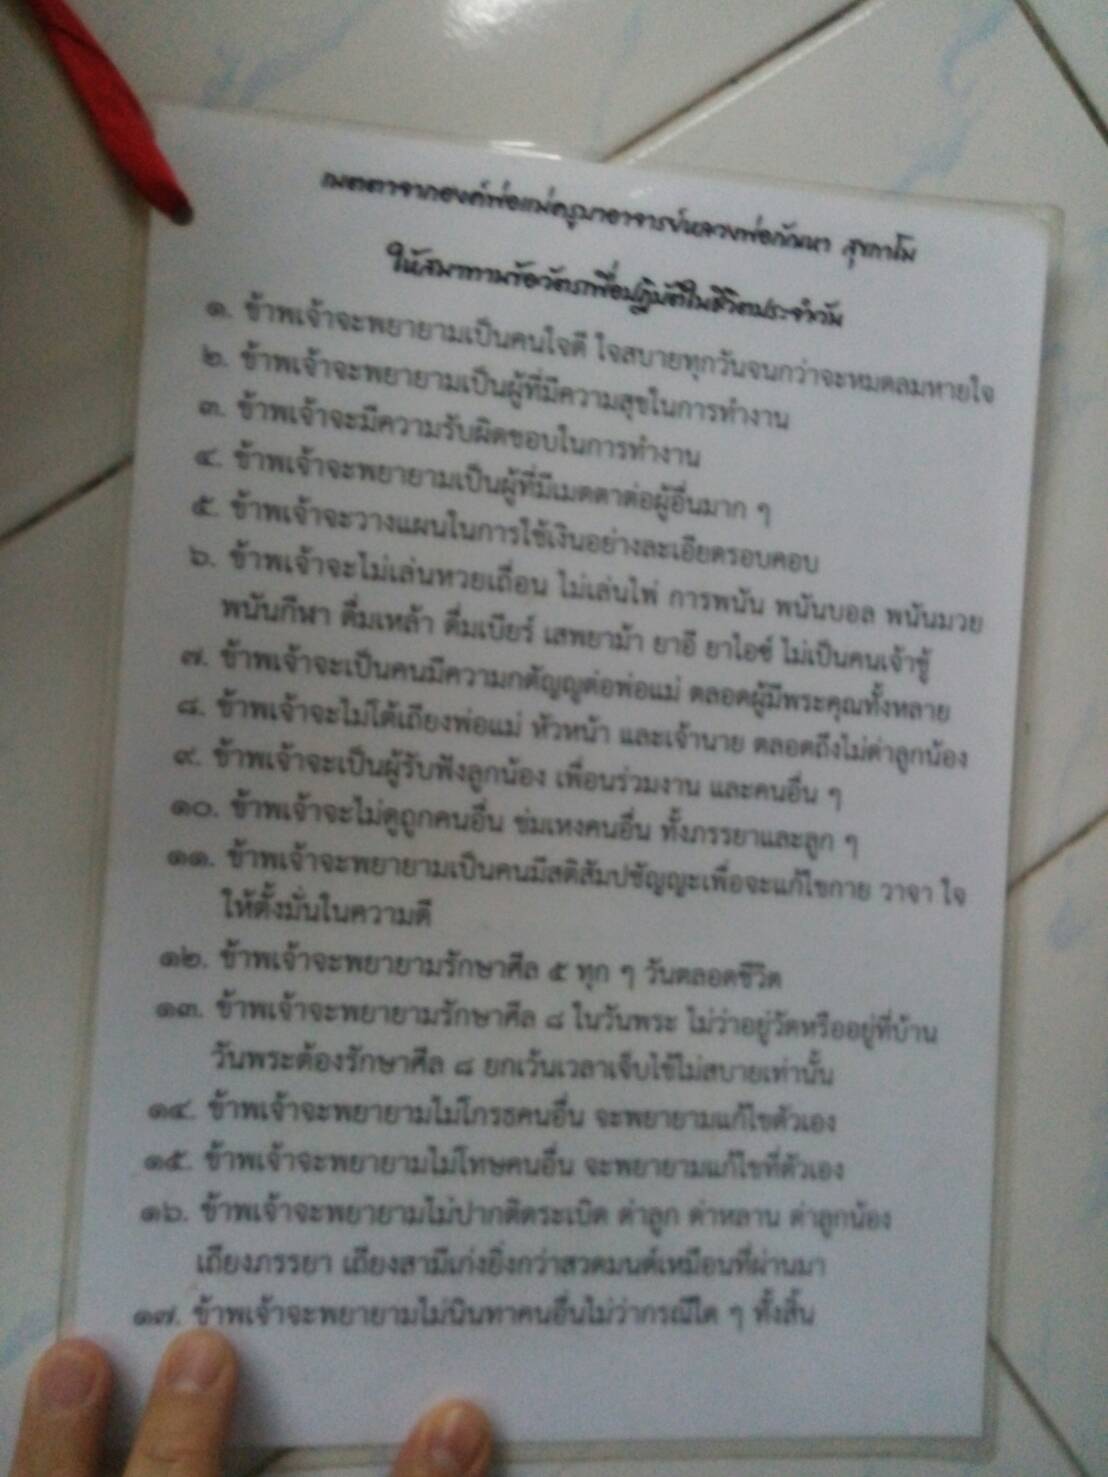 เมตตาจากองค์พ่อแม่ครูบาอาจารย์หลวงพ่อกัณหา สุขกาโม
ให้สมาทานข้อวัตรเพื่อปฏิบัติในชีวิตประจำวัน
๑. ข้าพเจ้าจะพยายามเป็นคนใจดี ใจสบายทุกวันจนกว่าจะหมดลมหายใจ
๒. ข้าพเจ้าจะพยายามเป็นผู้ที่มีความสุขในการทำงาน
๓. ข้าพเจ้าจะมีความรับผิดชอบในการทำงาน
๔. ข้าพเจ้าจะพยายามเป็นผู้ที่มีเมตตาต่อผู้อื่นมาก ๆ
๕. ข้าพเจ้าจะวางแผนในการใช้เงินอย่างละเอียดรอบคอบ
๖. ข้าพเจ้าจะไม่เล่นหวยเถื่อน ไม่เล่นไพ่ การพนัน พนันบอล พนันมวย
พนันกีฬา ดื่มเหล้า ดื่มเบียร์ เสพยาม้า ยาอี ยาไอซ์ ไม่เป็นคนเจ้าชู้
๗. ข้าพเจ้าจะเป็นคนมีความกตัญญูต่อพ่อแม่ ตลอดผู้มีพระคุณทั้งหลาย
๘. ข้าพเจ้าจะไม่โต้เถียงพ่อแม่ หัวหน้า และเจ้านาย ตลอดถึงไม่ด่าลูกน้อง
๙. ข้าพเจ้าจะเป็นผู้รับฟังลูกน้อง เพื่อนร่วมงาน และคนอื่น ๆ
๑๐. ข้าพเจ้าจะไม่ดูถูกคนอื่น ข่มเหงคนอื่น ทั้งภรรยาและลูก ๆ
๑๑. ข้าพเจ้าจะพยายามเป็นคนมีสติสัมปชัญญะเพื่อจะแก้ไขกาย วาจา ใจ
ให้ตั้งมั่นในความดี
๑๒. ข้าพเจ้าจะพยายามรักษาศีล ๕ ทุก ๆ วันตลอดชีวิต
๑๓. ข้าพเจ้าจะพยายามรักษาศีล ๘ ในวันพระ ไม่ว่าอยู่วัดหรืออยู่ที่บ้าน
วันพระต้องรักษาศีล ๘ ยกเว้นเวลาเจ็บไข้ไม่สบายเท่านั้น
๑๔. ข้าพเจ้าจะพยายามไม่โกรธคนอื่น จะพยายามแก้ไขตัวเอง
๑๕. ข้าพเจ้าจะพยายามไม่โทษคนอื่น จะพยายามแก้ไขที่ตัวเอง
๑๖. ข้าพเจ้าจะพยายามไม่ปากติดระเบิด ด่าลูก ด่าหลาน ด่าลูกน้อง
เถียงภรรยา เถียงสามีเก่งยิ่งกว่าสวดมนต์เหมือนที่ผ่านมา
๑๗. ข้าพเจ้าจะพยายามไม่นินทาคนอื่นไม่ว่ากรณีใด ๆ ทั้งสิ้น